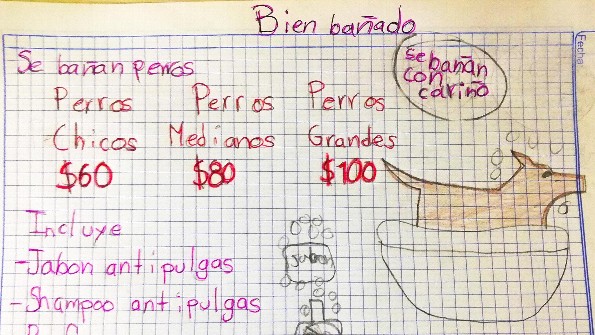 Bien bañado
Fecha
Se bañan perros
Se bañan
con
cariño
Perros Perros Perros
Chicos Medianos Grandes
$60 $80 $100
Incluye
-Jabon antipulgas
Jabon
-Shampoo antipulgas